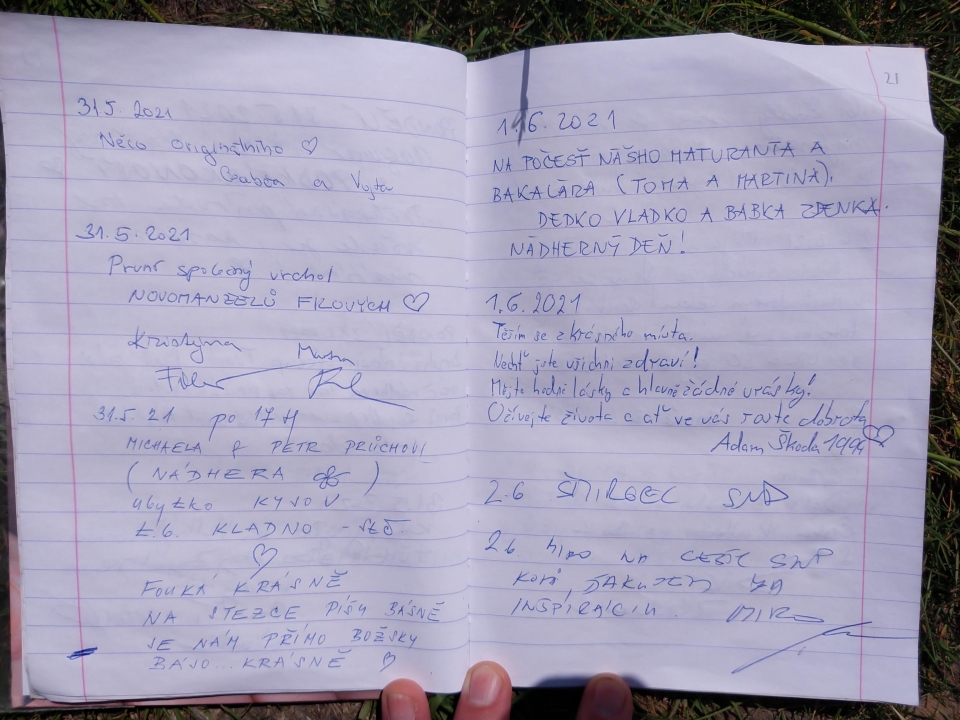 31.5. 2021
Něco originálního ♡
Gabča a Vojta
31.5.2021
První společný vrchol
NOVOMANŽELŮ FILOVÝCH ♡
Kristýna
31.5. 21 po 17 H
MICHAELA & PETR PRŮCHOVI
(NÁDHERA)
KYJOV
KLADNO
♡
FOUKÁ KRÁSNĚ
NA STEZCE PÍŠU BÁSNĚ
JE NÁM PŘÍMO BOŽSKY
BÁJO... KRÁSNĚ ♡
21
1.6.2021
NA POČESŤ NÁŠHO MATURANTA A
BAKALÁRA (TOMA A MARTINA).
DEDKO VLADKO A BABKA ZDENKA.
NÁDHERNÝ DEŇ!
1.6.2021
Těším se z krásného místa.
Nechť jste všichni zdraví!
Mějte hodně lásky a hlavně žádné vrásky!
Užívejte života a ať ve vás roste dobrota
♡
Adam Škoda 1994
2.6 SNP
2.6 MIRO NA CESTE SNP
ĎAKUJEM ZA
INŠPIRÁCIU. MIRO